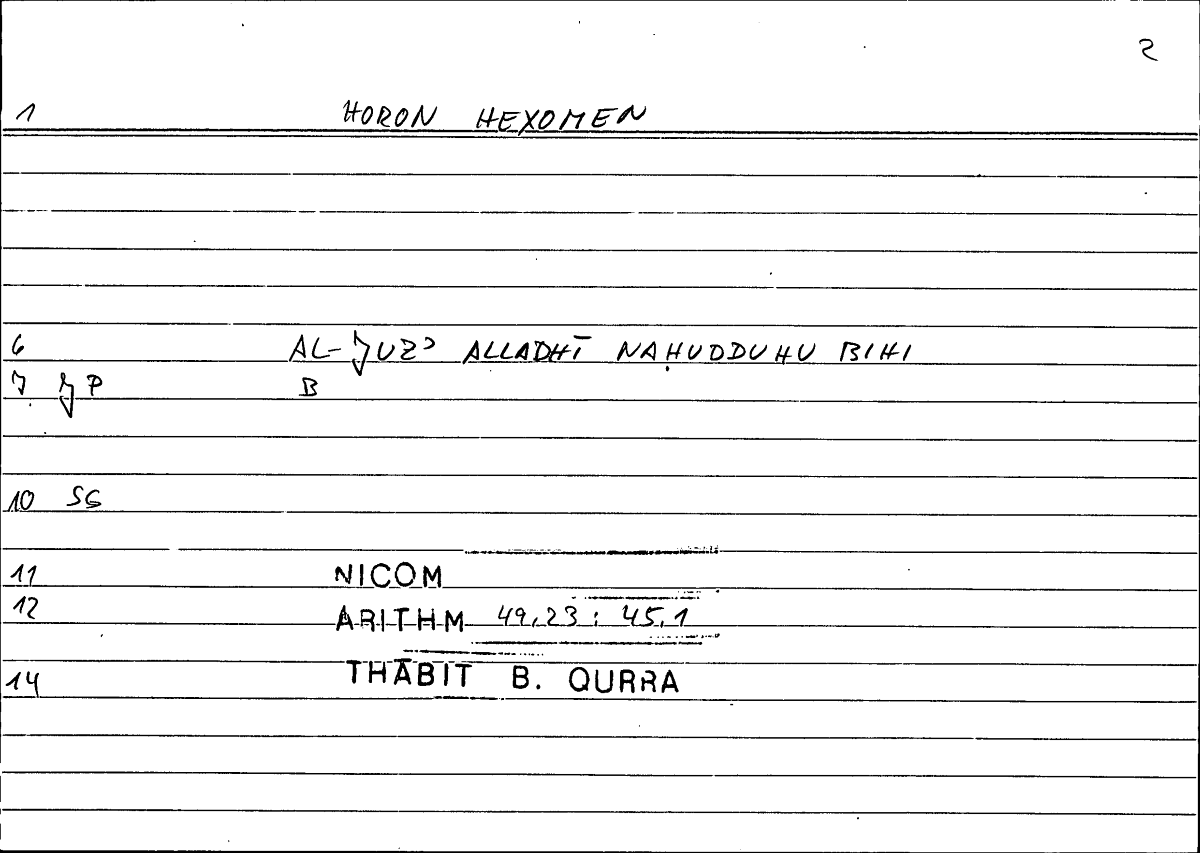 2
1 HORON HEXOMEN
6 AL-JUZʾ ALLADHĪ NAḤUDDUHU BIHI
7 JP B
10 SG
11 NICOM
12 ARITHM 49,23 : 45,1
14 THĀBIT B. QURRA